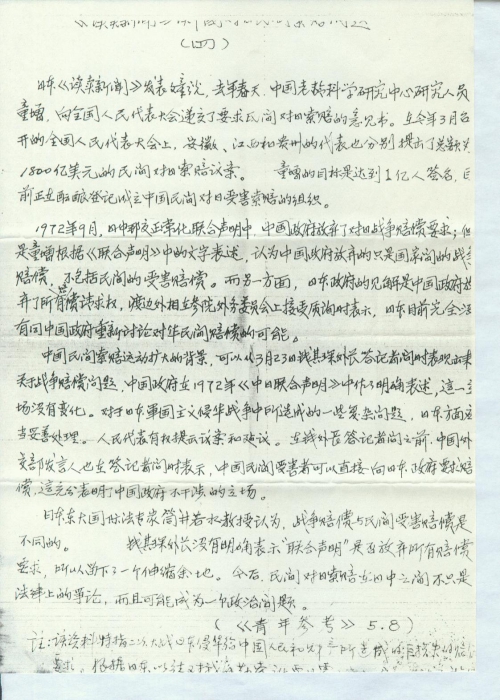 《读卖新闻》
(四)
日本《读卖新闻》发表文章谈，去年春天，中国老龄科学研究中心研究人员
童增，向全国人民代表大会递交了要求民间对日索赔的意见书。在今年3月召
开的全国人民代表大会上，安徽、江西和贵州的代表也分别提出了总额为
1800亿美元的民间对日索赔议案。 童增的目标是达到1亿人签名，目
前正在酝酿登记成立中国民间对日受害索赔的组织。
1972年9月，日中邦交正常化联合声明中，中国政府放弃了对日战争赔偿要求；但
是童增根据《联合声明》中的文字表述，认为中国政府放弃的只是国家间的战争
赔偿，不包括民间的受害赔偿。而另一方面，日本政府的见解是中国政府放
弃了所有索赔请求权，渡边外相在参院外务委员会上接受质询时表示，日本目前完全没
有同中国政府重新讨论对华民间赔偿的可能。
中国民间索赔运动扩大的背景，可以从3月23日钱其琛外长答记者问时表现出来
关于战争赔偿问题，中国政府在1972年《中日联合声明》中作了明确表述，这一立
场没有变化。对于日本军国主义侵华战争中所造成的一些复杂问题，日本方面应
当妥善处理。人民代表有权提出议案和建议。在钱外长答记者问之前，中国外
交部发言人也在答记者问时表示，中国民间受害者可以直接向日本政府要求赔
偿，这充分表明了中国政府不干涉的立场。
日本东大国际法专家筒井若水教授认为，战争赔偿与民间受害赔偿是
不同的。 钱其琛外长没有明确表示"联合声明"是否放弃所有赔偿
要求，所以留下了一个伸缩余地。今后，民间对日索赔在日中之间不只是
法律上的争论，而且可能成为一个政治问题。
(《青年参考》5.8)
注：该资料特指二次大战日本侵华给中国人民和财产所造成的
要求。根据日本